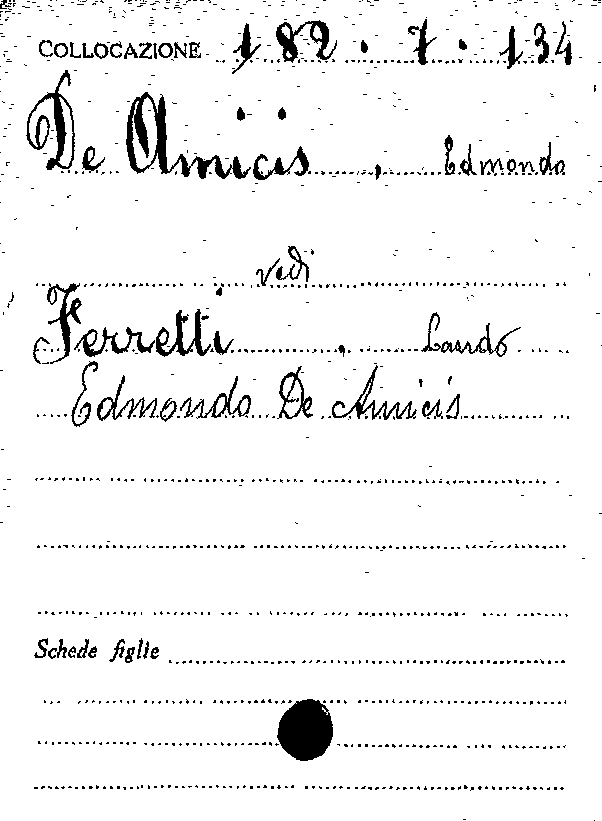 COLLOCAZIONE 182.7.134
De Amicis, Edmondo
vedi
Ferretti, Lando
Edmondo De Amicis
Schede figlie